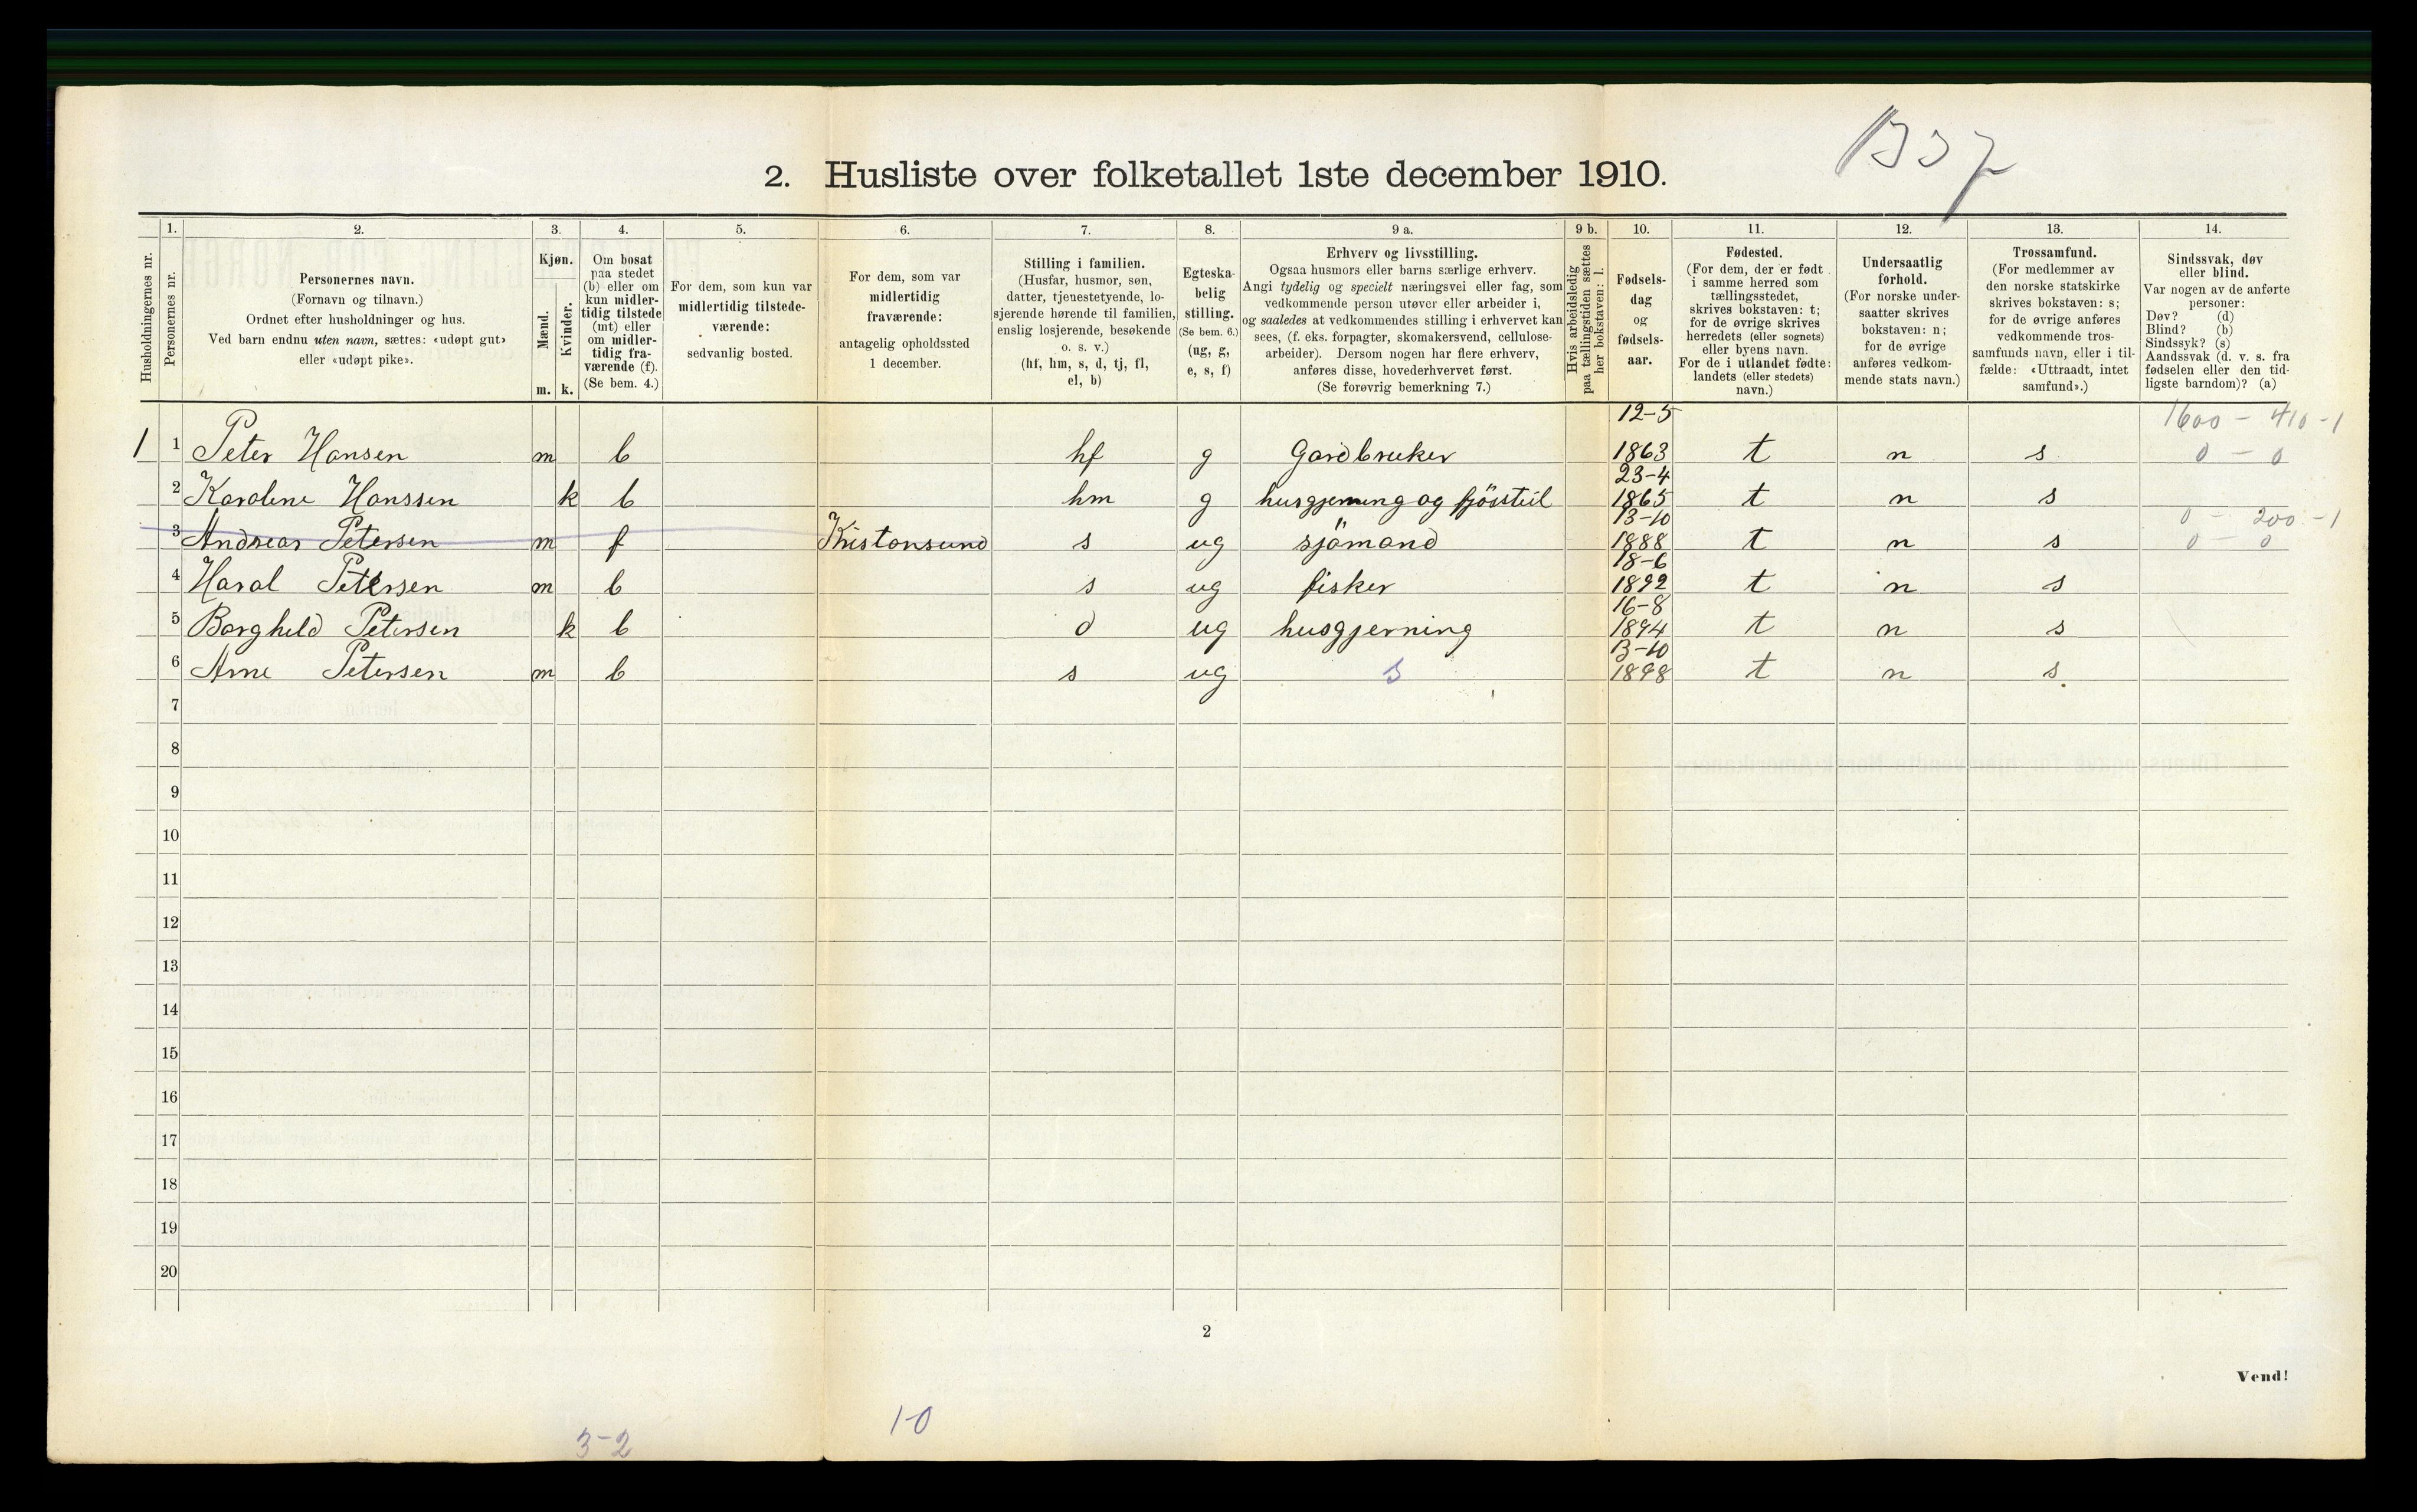 B37
2. Husliste over folketallet 1ste december 1910.
Husholdningernes nr.
1.
Personernes nr.
2.
Personernes navn.
(Fornavn og tilnavn.)
Ordnet efter husholdninger og hus.
Ved barn endnu uten navn, sættes: «udøpt gut»
eller «udøpt pike».
3.
Kjøn.
Mænd.
Kvinder.
m. k.
4.
Om bosat
paa stedet
(b) eller om
kun midler-
tidig tilstede
(mt) eller
om midler-
tidig fra-
værende (f).
(Se bem. 4.)
5.
For dem, som kun var
midlertidig tilstede-
værende:
sedvanlig bosted.
6.
For dem, som var
midlertidig
fraværende:
antagelig opholdssted
1 december.
7.
Stilling i familien.
(Husfar, husmor, søn,
datter, tjenestetyende, lo-
sjerende hørende til familien,
enslig losjerende, besøkende
o. s. v.)
(hf, hm, s, d, tj, fl,
el, b)
8.
Egteska-
belig
stilling.
(Se bem. 6.)
(ug, g,
e, s, f)
9 a.
Erhverv og livsstilling.
Ogsaa husmors eller barns særlige erhverv.
Angi tydelig og specielt næringsvei eller fag, som
vedkommende person utøver eller arbeider i,
og saaledes at vedkommendes stilling i erhvervet kan
sees, (f. eks. forpagter, skomakersvend, cellulose-
arbeider). Dersom nogen har flere erhverv,
anføres disse, hovederhvervet først.
(Se forøvrig bemerkning 7.)
9 b.
Hvis arbeidsledig
paa tællingstiden sættes
her bokstaven: l.
10.
Fødsels-
dag
og
fødsels-
aar.
11.
Fødested.
(For dem, der er født
i samme herred som
tællingsstedet,
skrives bokstaven: t;
for de øvrige skrives
herredets (eller sognets)
eller byens navn.
For de i utlandet fødte:
landets (eller stedets)
navn.)
12.
Undersaatlig
forhold.
(For norske under-
saatter skrives
bokstaven: n;
for de øvrige
anføres vedkom-
mende stats navn.)
13.
Trossamfund.
(For medlemmer av
den norske statskirke
skrives bokstaven: s;
for de øvrige anføres
vedkommende tros-
samfunds navn, eller i til-
fælde: «Uttraadt, intet
samfund».)
14.
Sindssvak, døv
eller blind.
Var nogen av de anførte
personer:
Døv? (d)
Blind? (b)
Sindssyk? (s)
Aandssvak (d. v. s. fra
fødselen eller den tid-
ligste barndom)? (a)
12-5 1600 - 410 - 1
1 1 Peter Hansen m b hf g Gardbruker 1863 t n s 0 - 0
23-4
2 Karoline Hanssen k b hm g husgjerning og fjösstel 1865 t n s
13-10 0 - 200 - 1
3 Andreas Petersen m f Kristansund s ug sjömand 1888 t n s 0 - 0
18-6
4 Haral Petersen m b s ug fisker 1892 t n s
16-8
5 Borghild Petersen k b d ug husgjerning 1894 t n s
13-10
6 Arne Petersen m b s ug s 1898 t n s
7
8
9
10
11
12
13
14
15
16
17
18
19
20
2
Vend!
1-0
3-2